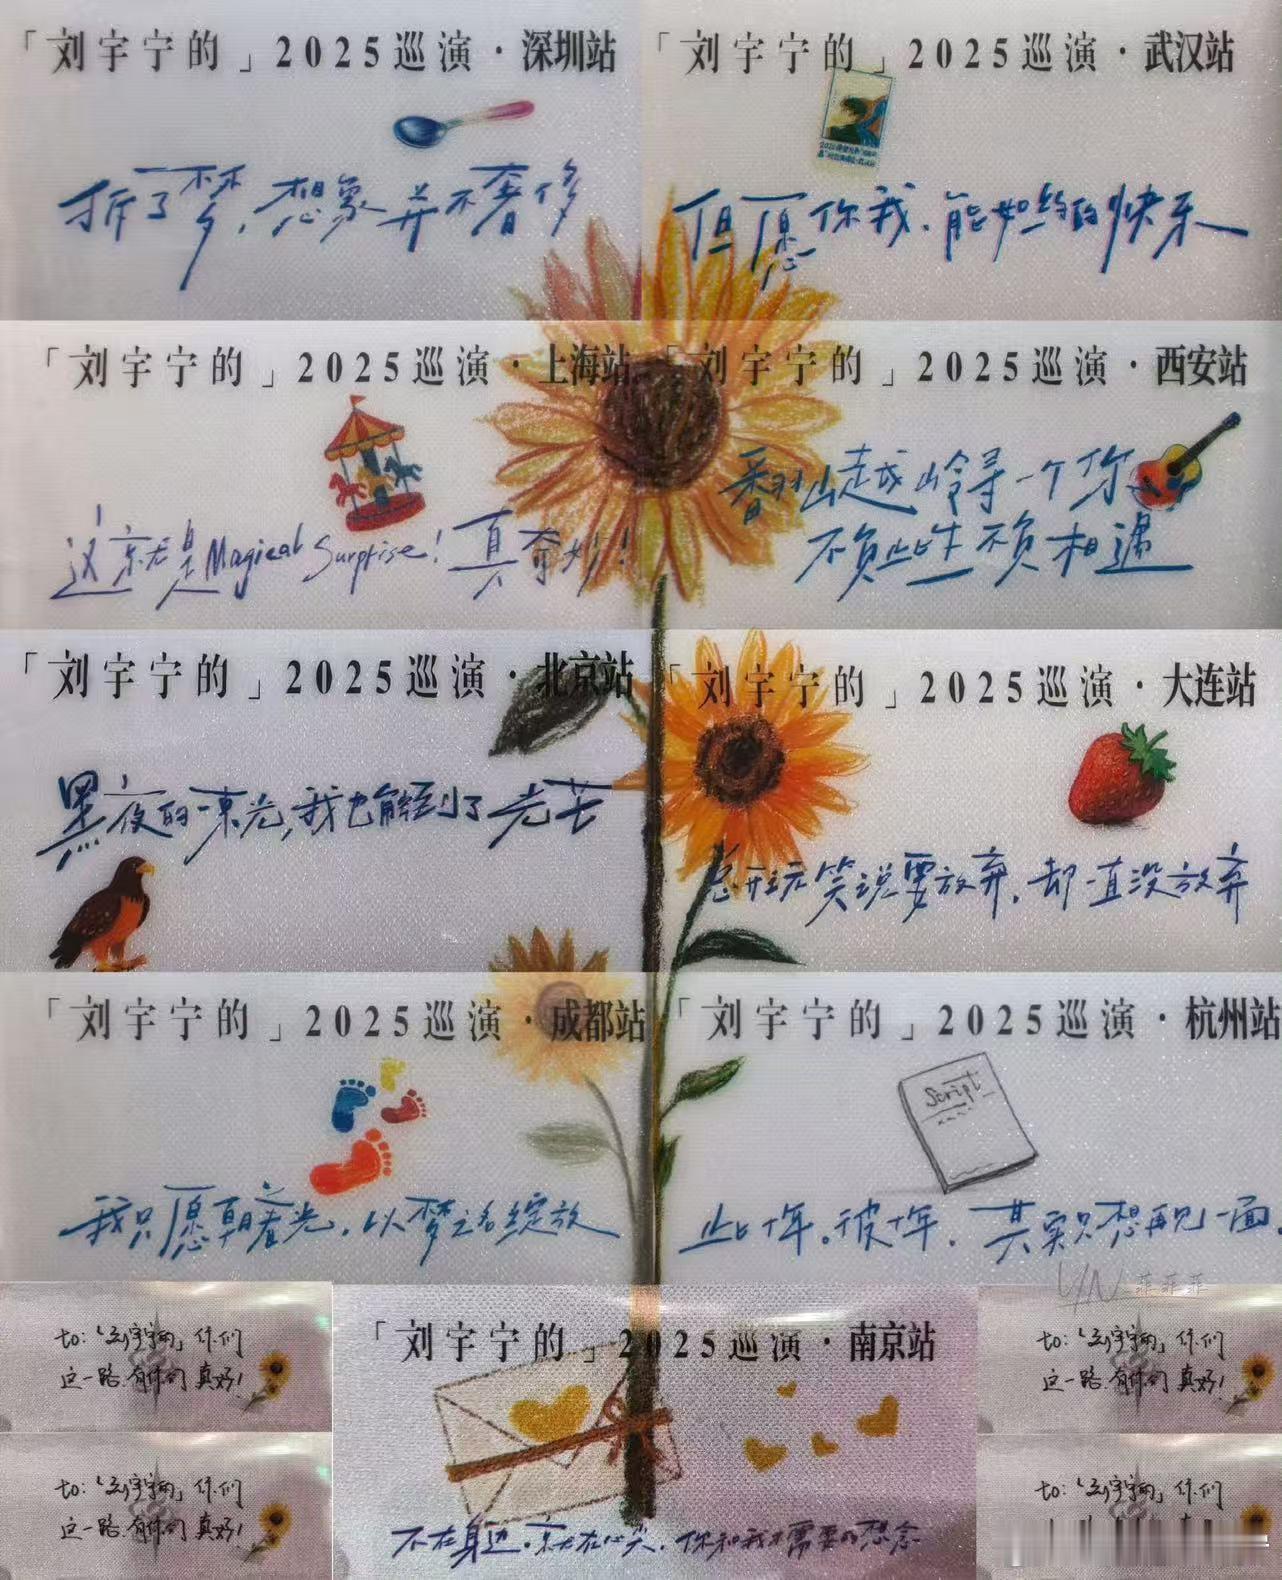 「刘宇宁的」2025巡演·深圳站
拆了梦,想象并不奢侈
「刘宇宁的」2025巡演·武汉站
但愿你我.能如约的快乐
「刘宇宁的」2025巡演·上海站
这就是Magical Surprise!真奇妙!
「刘宇宁的」2025巡演·西安站
翻山越岭寻一个你
不负此生不负相遇
「刘宇宁的」2025巡演·北京站
黑夜的一束光,我也能到了光芒
「刘宇宁的」2025巡演·大连站
总开玩笑说要放弃,却一直没放弃
「刘宇宁的」2025巡演·成都站
我只愿朝着光,以梦之名绽放
「刘宇宁的」2025巡演·杭州站
Script
此十年。彼十年.其实只想再见一面.
LYN 菲菲菲
to:「刘宇宁的」你们
这一路.有你们真好!
「刘宇宁的」2025巡演·南京站
不在身边.就在心尖.你和我才需要的想念
to:「刘宇宁的」你们
这一路.有你们真好!
to:「刘宇宁的」你们
这一路.有你们真好!
to:「刘宇宁的」你们